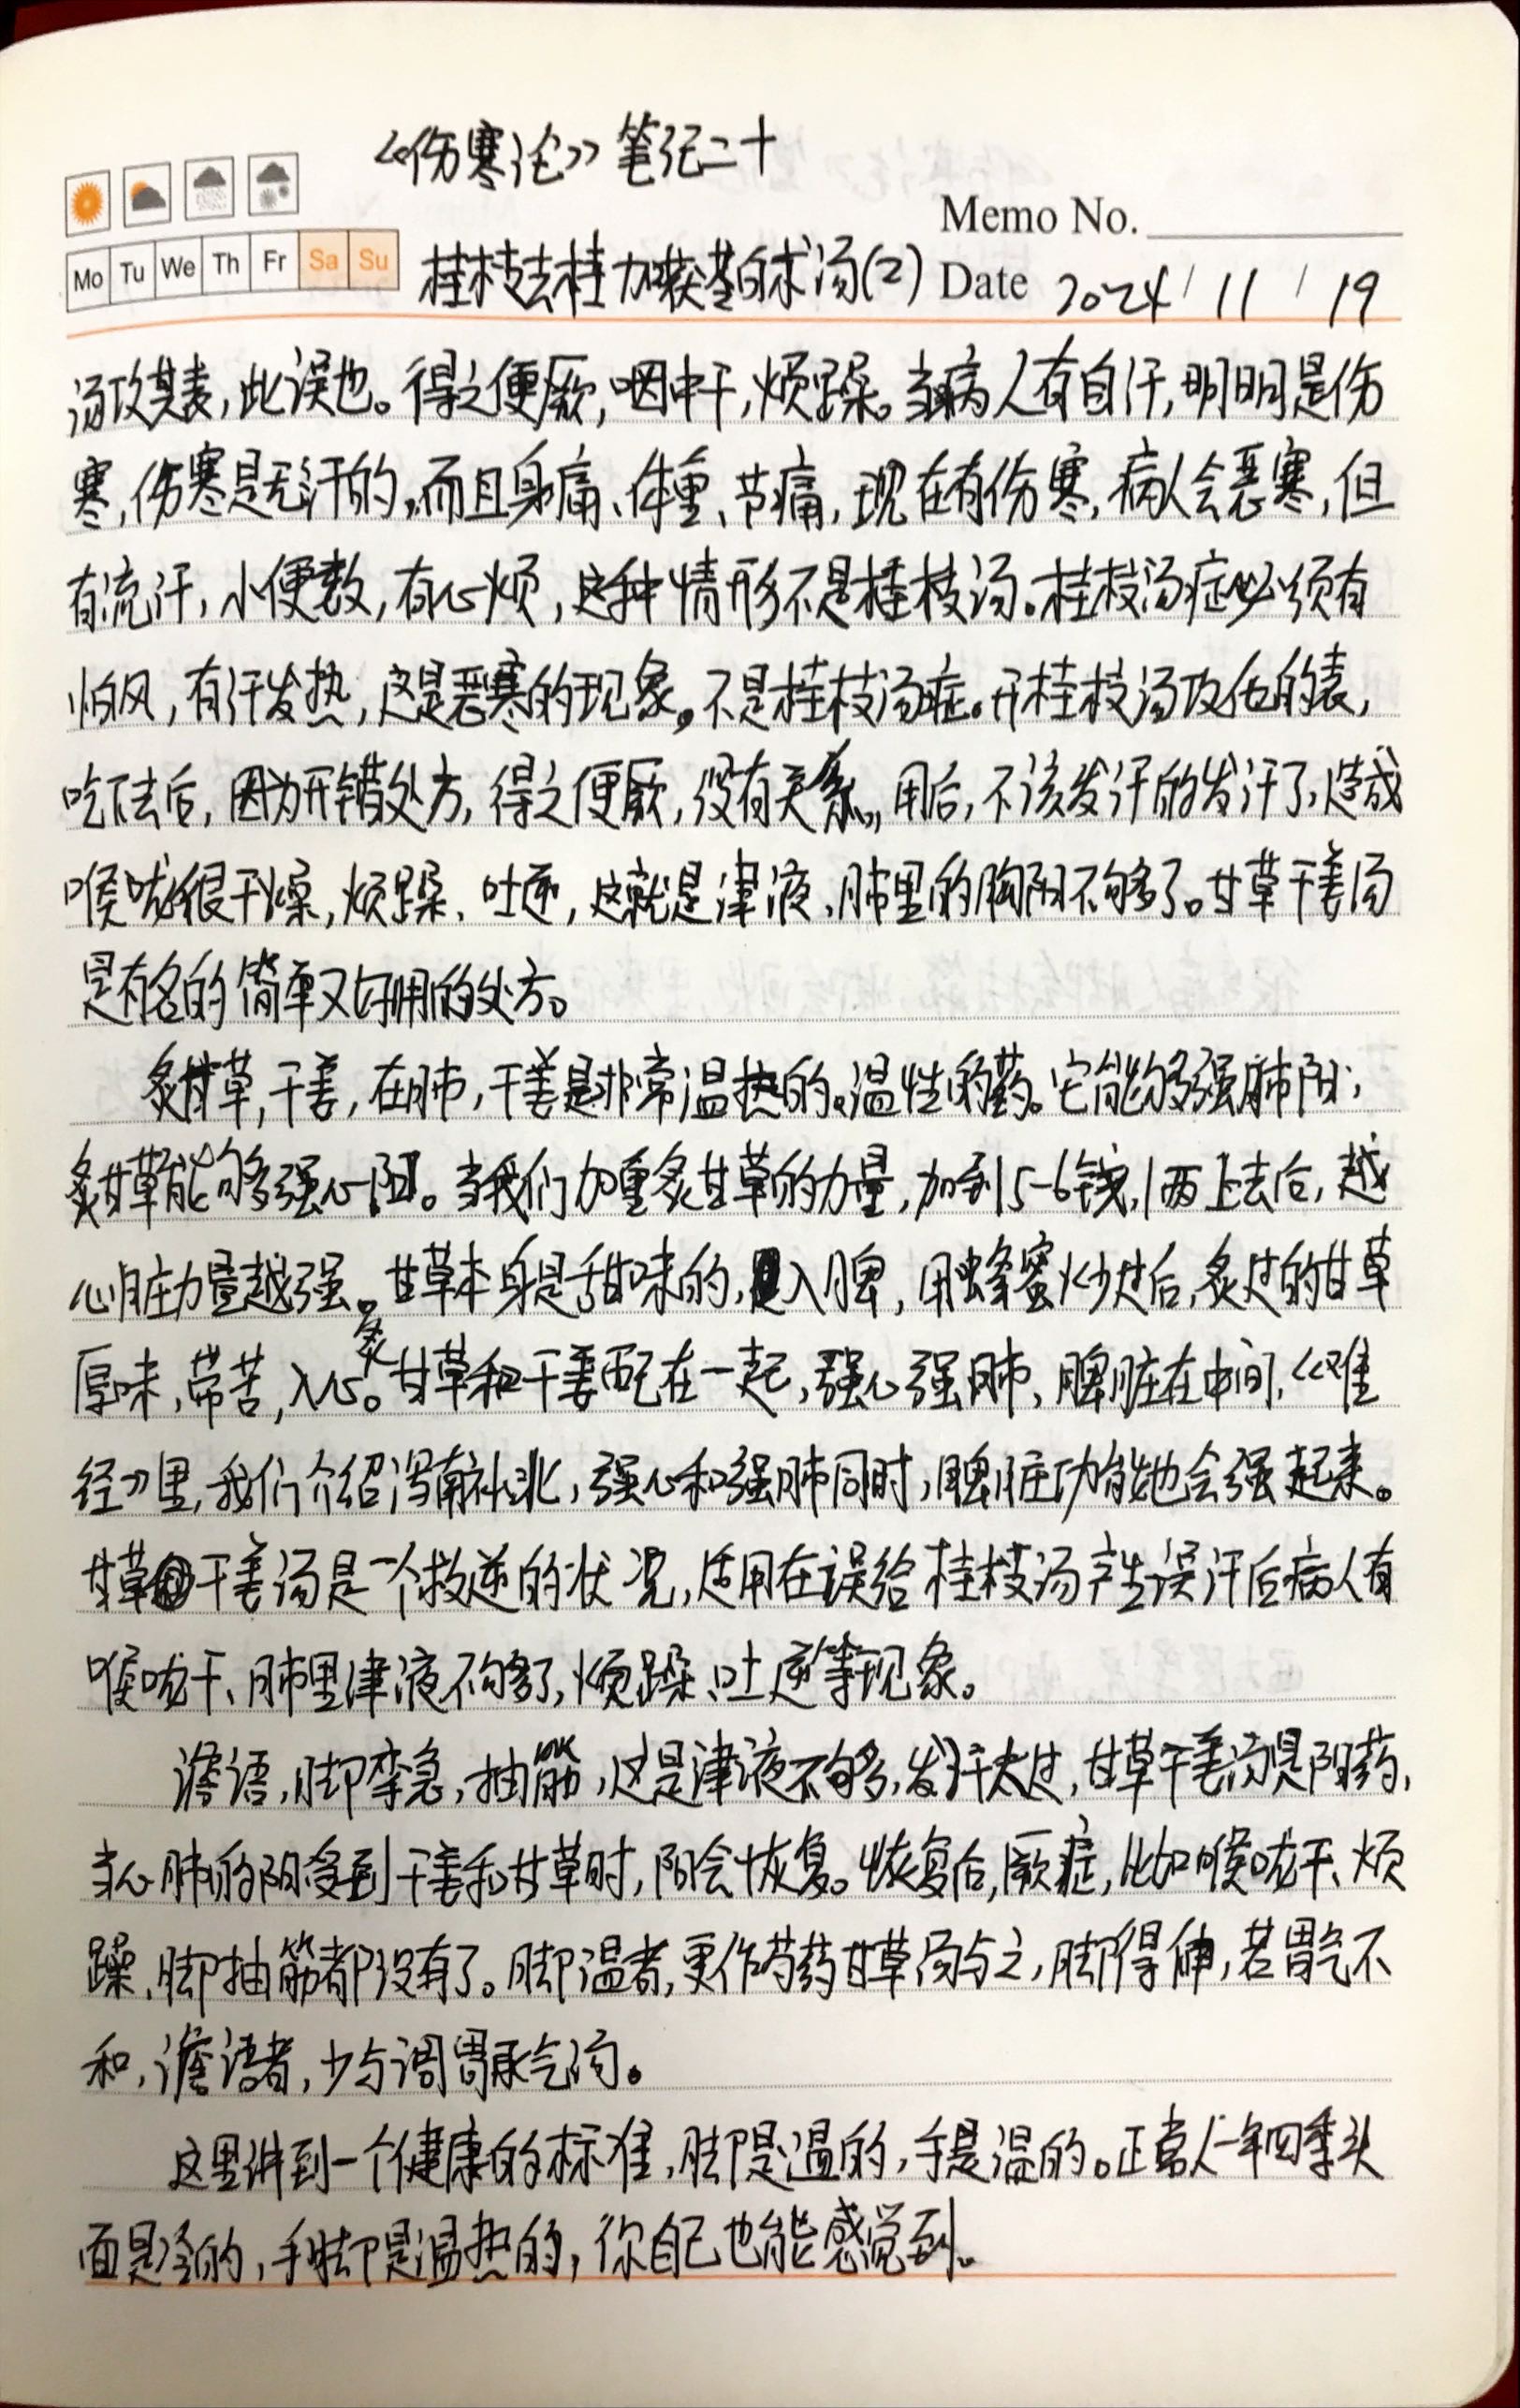 《伤寒论》笔记二十
Memo No.
Mo Tu We Th Fr Sa Su
桂枝去桂加茯苓白术汤(2) Date 2024/11/19
汤攻其表,此误也。得之便厥,咽中干,烦躁。当病人有自汗,明明是伤
寒,伤寒是无汗的,而且身痛、体重、节痛,现在有伤寒,病人会恶寒,但
有流汗,小便数,有心烦,这种情形不是桂枝汤。桂枝汤症必须有
怕风,有汗发热,这是恶寒的现象,不是桂枝汤症。开桂枝汤攻他的表,
吃下去后,因为开错处方,得之便厥,没有关系,用后,不该发汗的发汗了,造成
喉咙很干燥,烦躁、吐逆,这就是津液、肺里的胸阳不够多了。甘草干姜汤
是有名的简单又好用的处方。
炙甘草,干姜,在肺,干姜是非常温热的。温性的药。它能够强肺阳;
炙甘草能够强心阳。当我们加重炙甘草的力量,加到5-6钱,1两上去后,越
心脏力量越强。甘草本身是甜味的,入脾,用蜂蜜炒过后,炙过的甘草
厚味,带苦,入心。炙甘草和干姜配在一起,强心强肺、脾脏在中间,《难
经》里,我们介绍泻南补北,强心和强肺同时,脾脏功能也会强起来。
甘草干姜汤是一个救逆的状况,适用在误给桂枝汤产生误汗后病人有
喉咙干、肺里津液不够了,烦躁、吐逆等现象。
谵语,脚挛急,抽筋,这是津液不够,发汗太过,甘草干姜汤是阳药,
当心肺的阳受到干姜和甘草时,阳会恢复。恢复后,厥症,比如喉咙干、烦
躁、脚抽筋都没有了。脚温者,更作芍药甘草汤与之,脚得伸,若胃气不
和,谵语者,少与调胃承气汤。
这里讲到一个健康的标准,脚是温的,手是温的。正常人一年四季头
面是冷的,手脚是温热的,你自己也能感觉到。